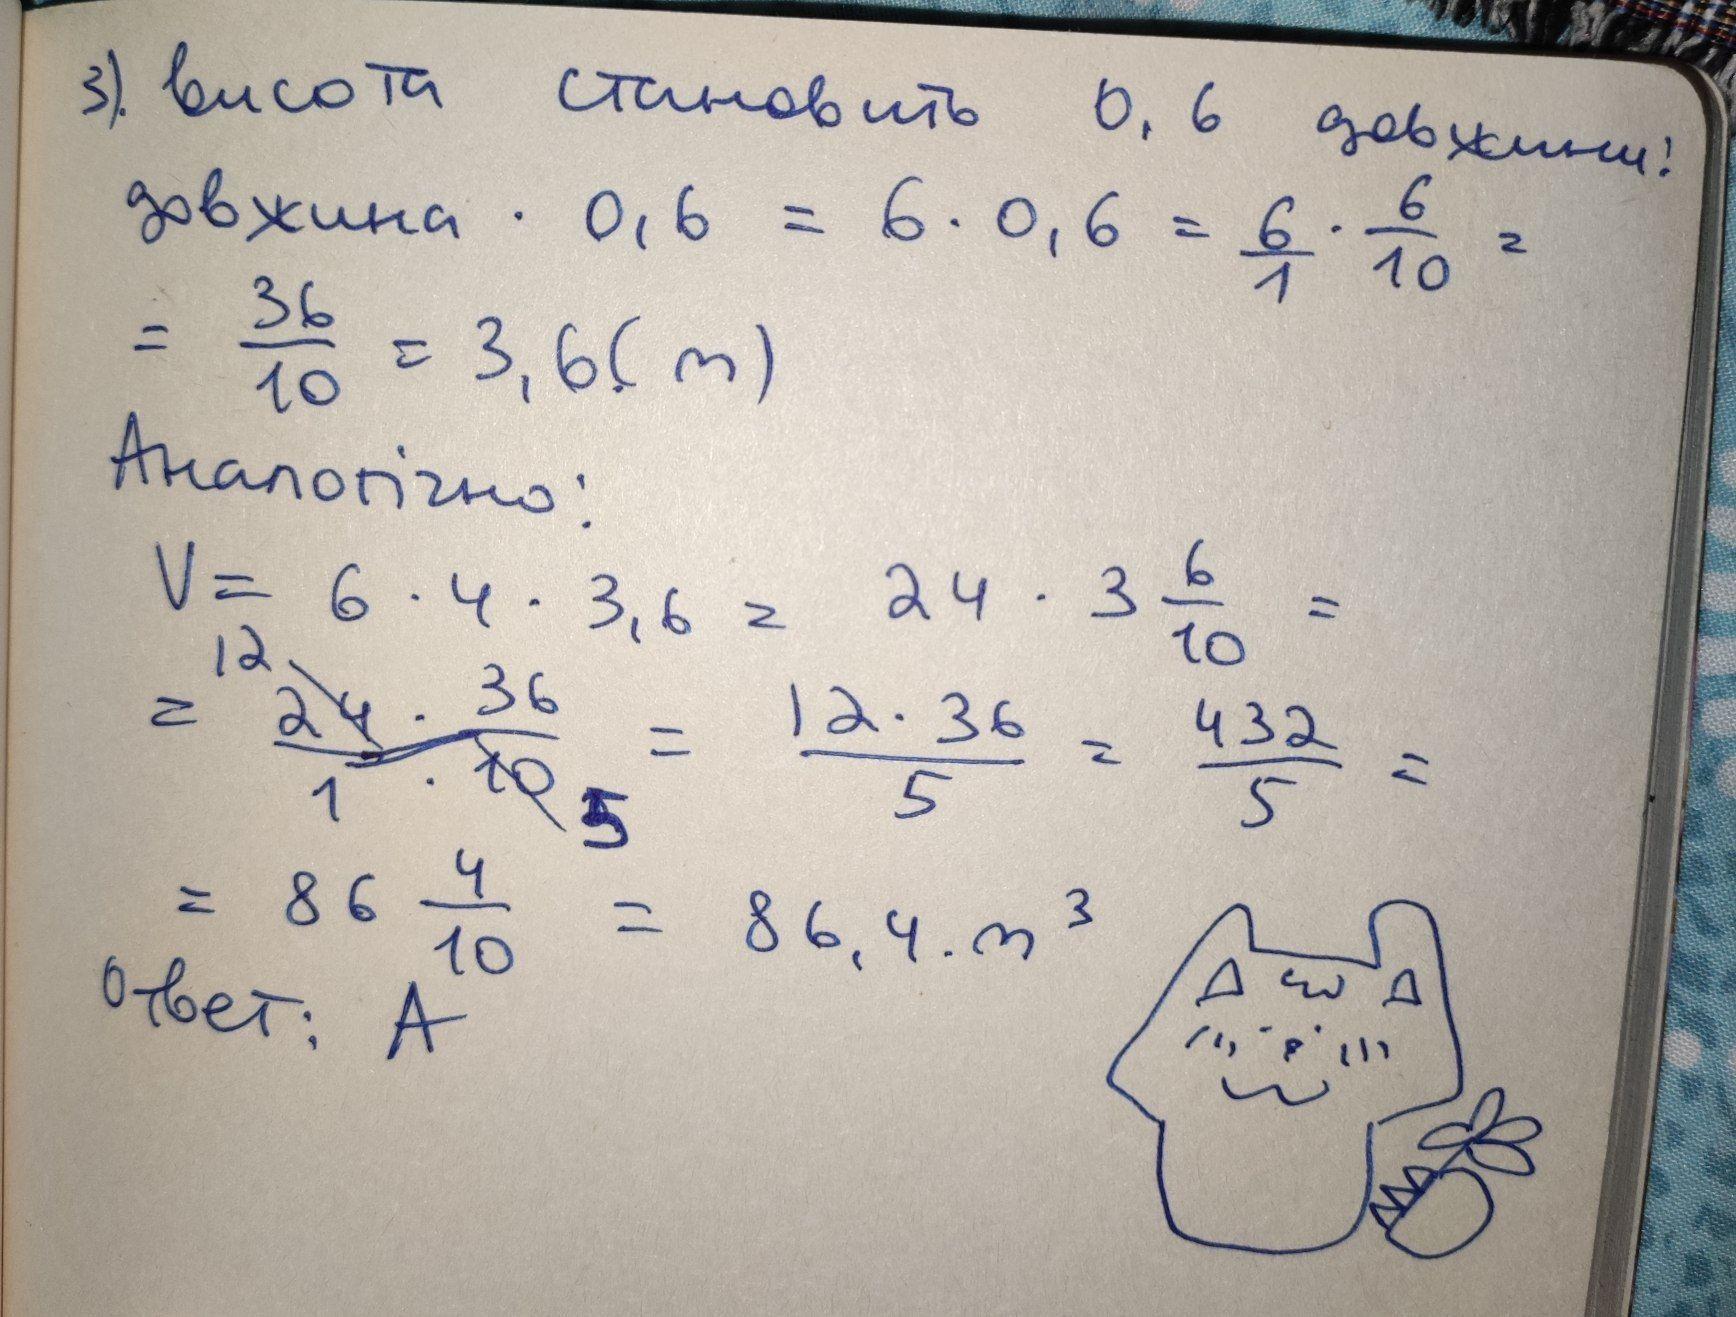 3). висота становить 0,6 довжини:
довжина · 0,6 = 6 · 0,6 = 6/1 · 6/10 =
= 36/10 = 3,6 (m)
Аналогічно:
V = 6 · 4 · 3,6 = 24 · 3 6/10 =
12
= 24 · 36 / 1 · 10 5 = 12 · 36 / 5 = 432/5 =
= 86 4/10 = 86,4. m³
Ответ: А